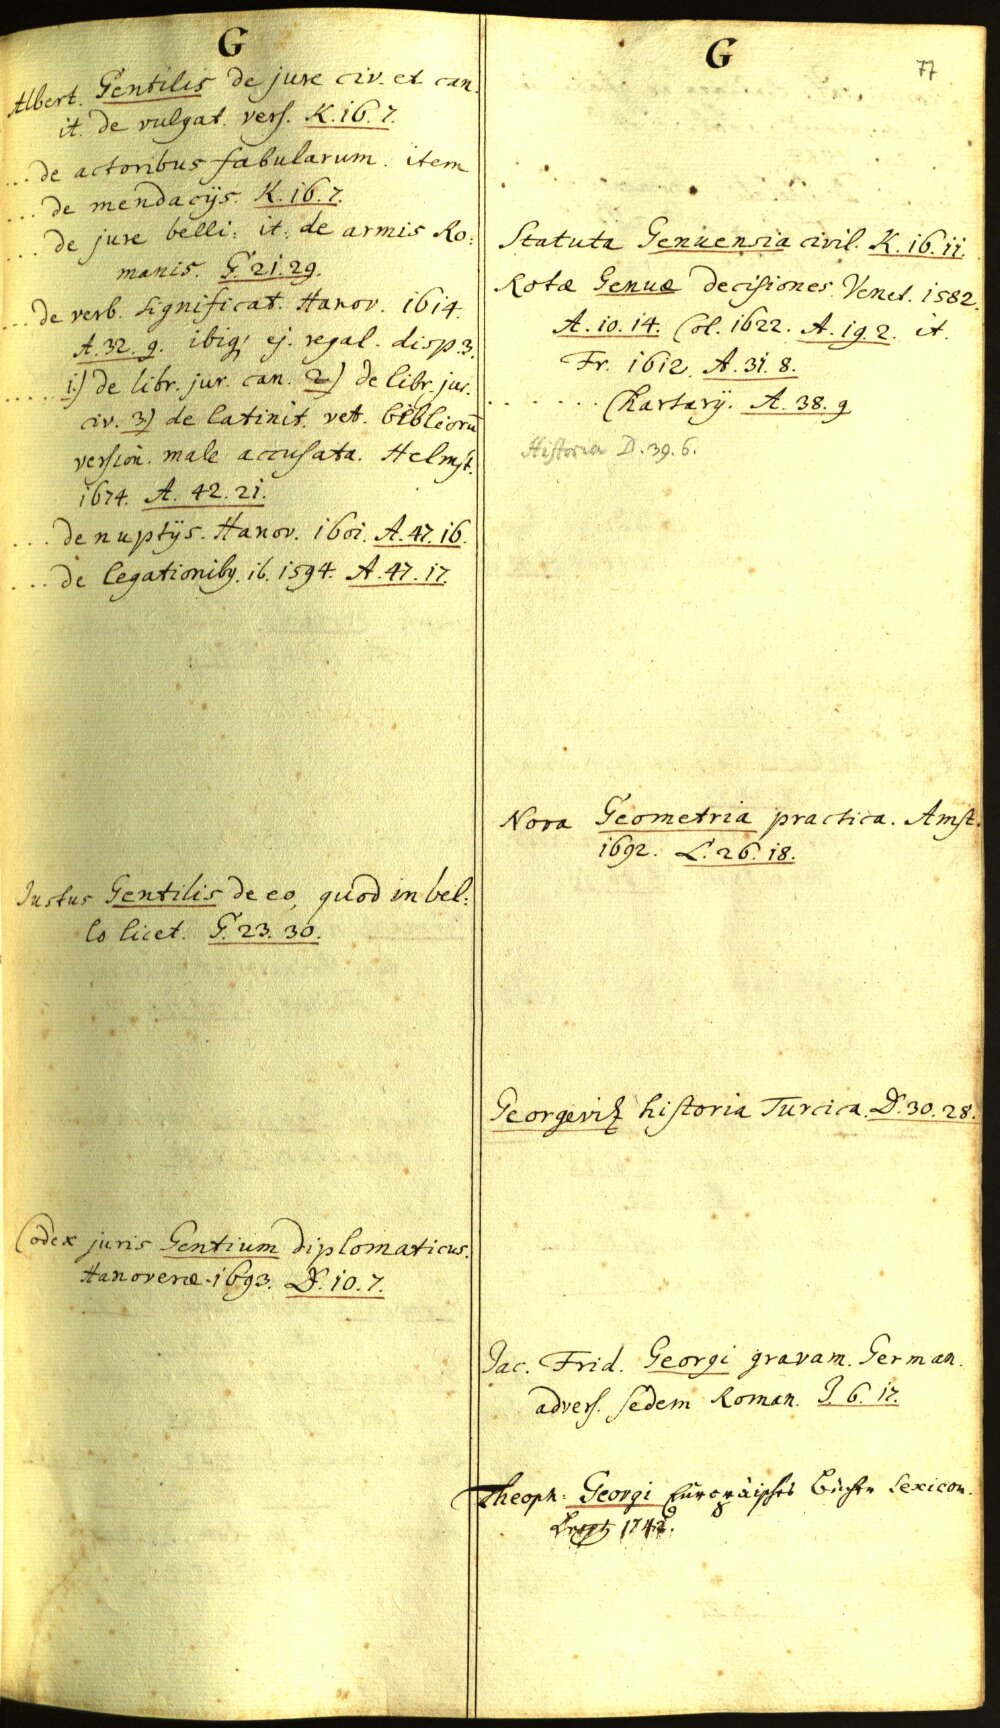 G
Albert. Gentilis de jure civ. et can.
it. de vulgat. vers. K. 16. 7.
... de actoribus fabularum. item
... de mendacijs. K. 16. 7.
... de jure belli: it: de armis Ro:
manis. G. 21. 29.
... de verb. significat. Hanov. 1614.
A. 32. 9. ibiq; ej. regal. disp. 3.
..... 1.) de libr. jur. can. 2) de libr. jur.
civ. 3) de latinit. vet. bibliorū
version. male accusata. Helmst.
1674. A. 42. 21.
... de nuptijs. Hanov. 1601. A. 47. 16.
... de legationibꝫ. ib. 1594. A. 47. 17.
Justus Gentilis de eo, quod in bel:
lo licet. G. 23. 30.
Codex juris Gentium diplomaticus.
Hanoveræ. 1693. D. 10. 7.
G
77
Statuta Genuensia civil. K. 16. 11.
Rotæ Genuæ decisiones. Venet. 1582.
A. 10. 14. Col. 1622. A. 19. 2. it.
Fr. 1612. A. 31. 8.
........ Chartarij. A. 38. 9
Historia D. 39. 6.
Nova Geometria practica. Amst.
1692. L. 26. 18.
Georgeviz historia Turcica. D. 30. 28.
Jac. Frid. Georgi gravam. German.
advers. sedem Roman. J. 6. 17.
Theoph: Georgi Europäisches Bücher Lexicon.
1742.